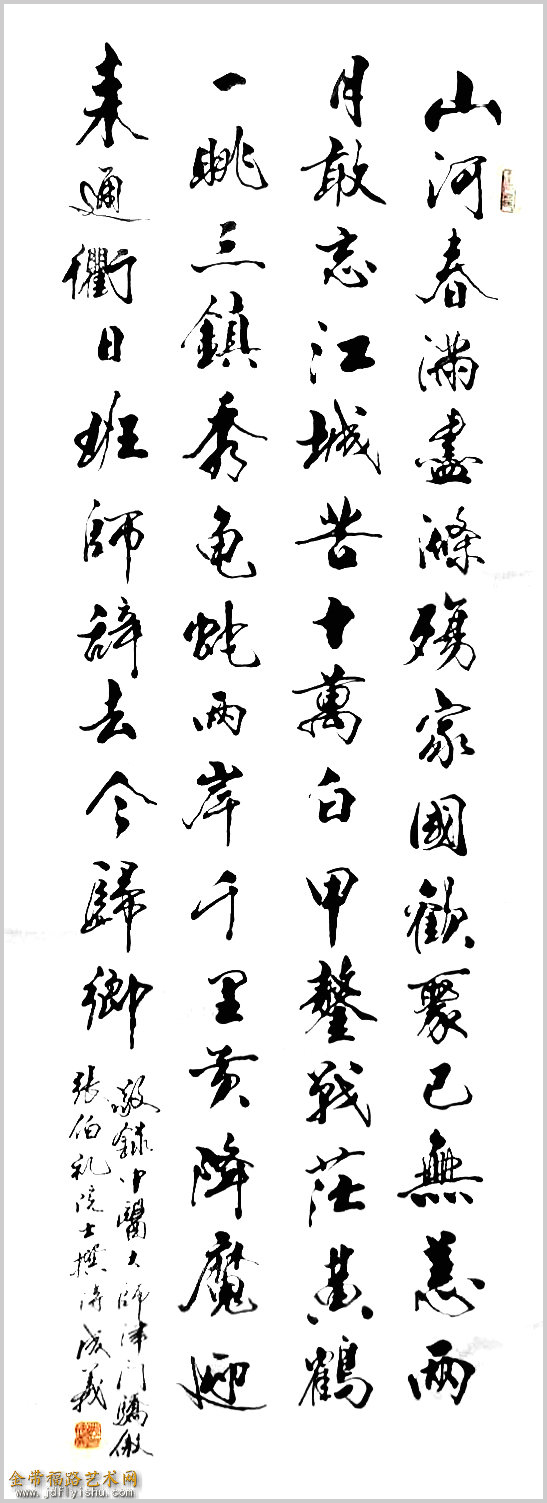 山河春滿盡滌殤家國歡聚已無恙兩
月敢忘江城苦十萬白甲鏖戰茫黄鶴
一眺三鎮秀龟蛇兩岸千里黄降魔迎
来通衢日班師辞去今歸鄉
敬録中醫大師津门驕傲
张伯礼院士撰诗成義
金带福路艺术网
www.jdflyishu.com